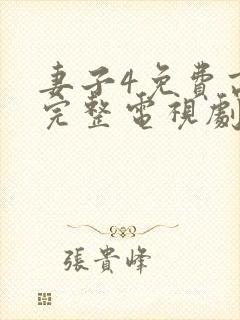 妻子4免費
完整電視劇
張貴峰